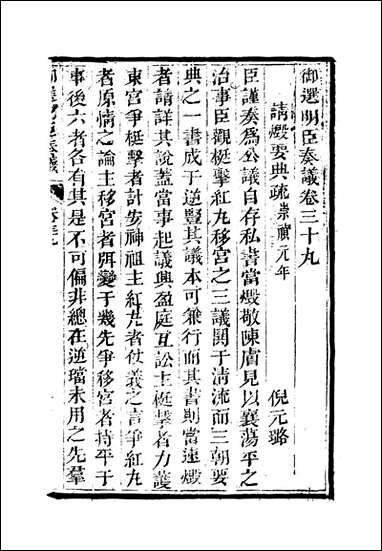 御選明臣奏議卷三十九
請燬要典疏崇禎元年
倪元璐
臣謹奏爲公議自存私書當燬敬陳膚見以襄蕩平之
治事臣觀梃擊紅丸移宮之三議鬨于清流而三朝要
典之一書成于逆豎其議本可兼行而其書則當速燬
者請詳其說蓋當事起議興盈庭互訟主梃擊者力護
東宮爭梃擊者計安神祖主紅丸者仗義之言爭紅丸
者原情之論主移宮者弭變于幾先爭移宮者持平于
事後六者各有其是不可偏非總在逆璫未用之先羣